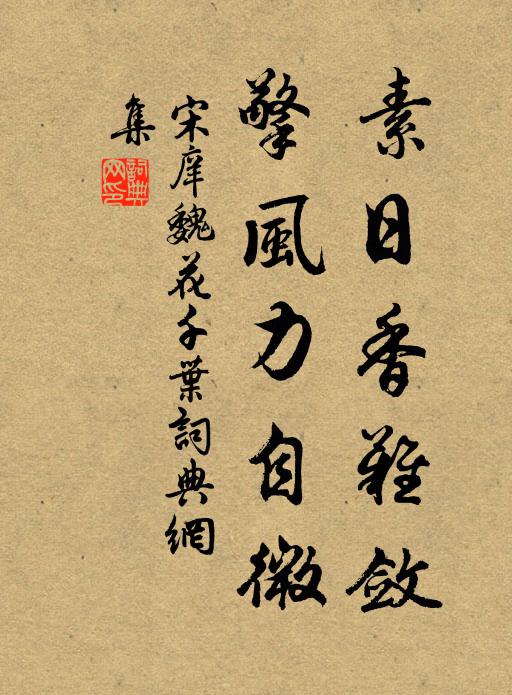 素日香難斂
擎風力自微
宋庠魏花千葉詞典網
集
詞典網印